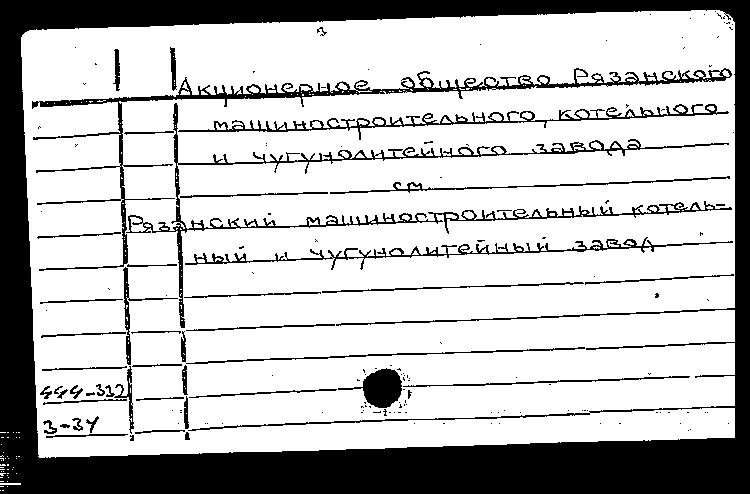 Акционерное общество Рязанского
машиностроительного, котельного
и чугунолитейного завода
см.
Рязанский машиностроительный котель-
ный и чугунолитейный завод
444-312
3-34